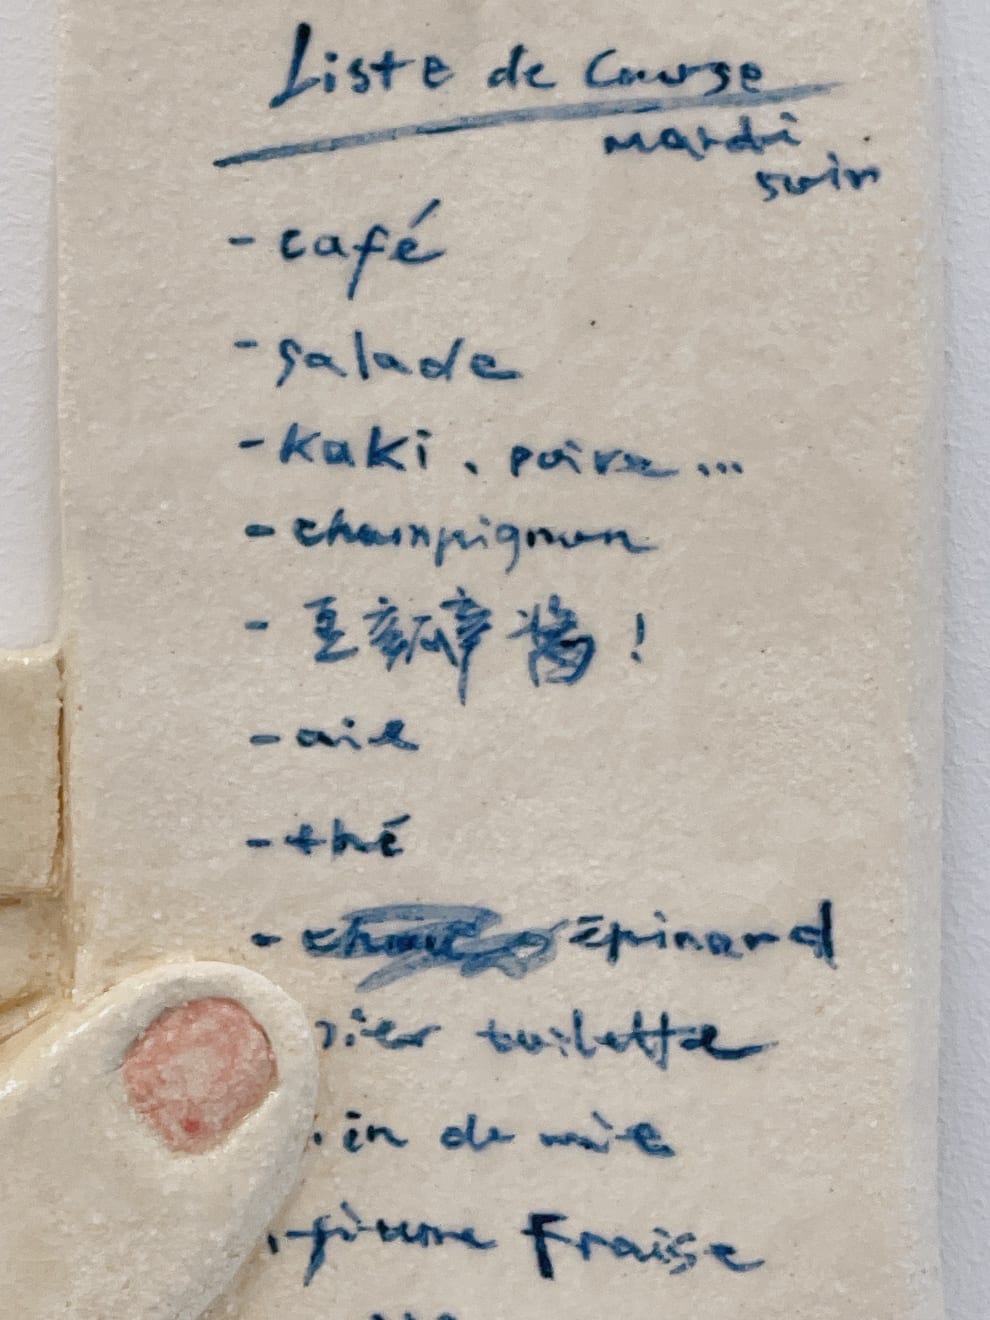 Liste de Course
mardi
soir
- café
- salade
- kaki, poire...
- champignon
- 豆瓣醬!
- aie
- thé
- Épinard
pier toilette
in de mie
Fraise